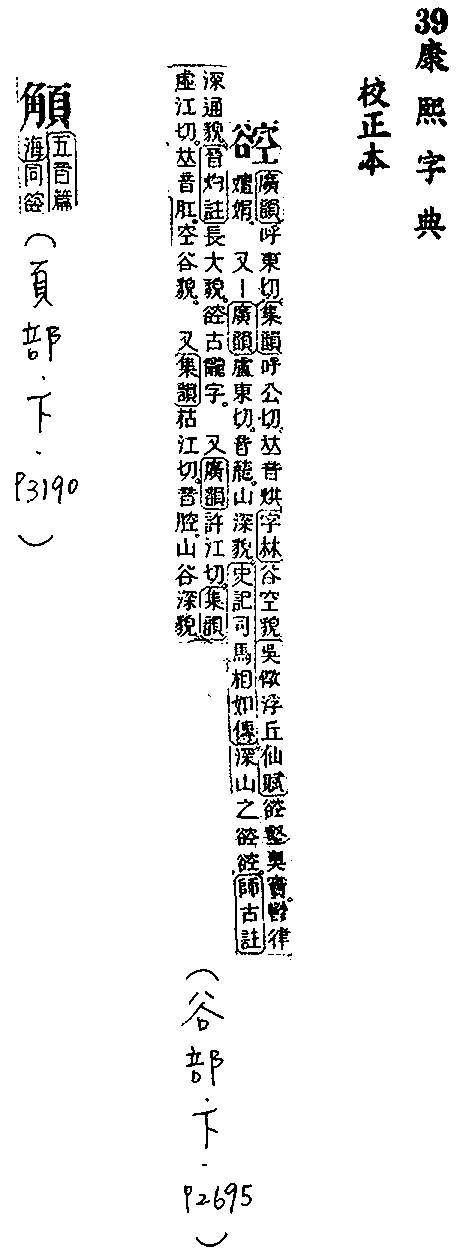 39康熙字典
校正本
谾
廣韻呼東切。集韻呼公切𠀤音烘字林谷空貌吳浮丘仙賦谾壑奧律
嬋娟。又丨廣韻盧東切。音籠。山深貌。史記司馬相如傳深山之谾谾。師古註
深通貌。晉灼註長大貌。谾古豅字。又廣韻許江切。集韻
虛江切𠀤音肛。空谷貌。又集韻枯江切。音腔。山谷深貌
(谷部.下.P2695)
五音篇
海同谾
(頁部.下.P3190)